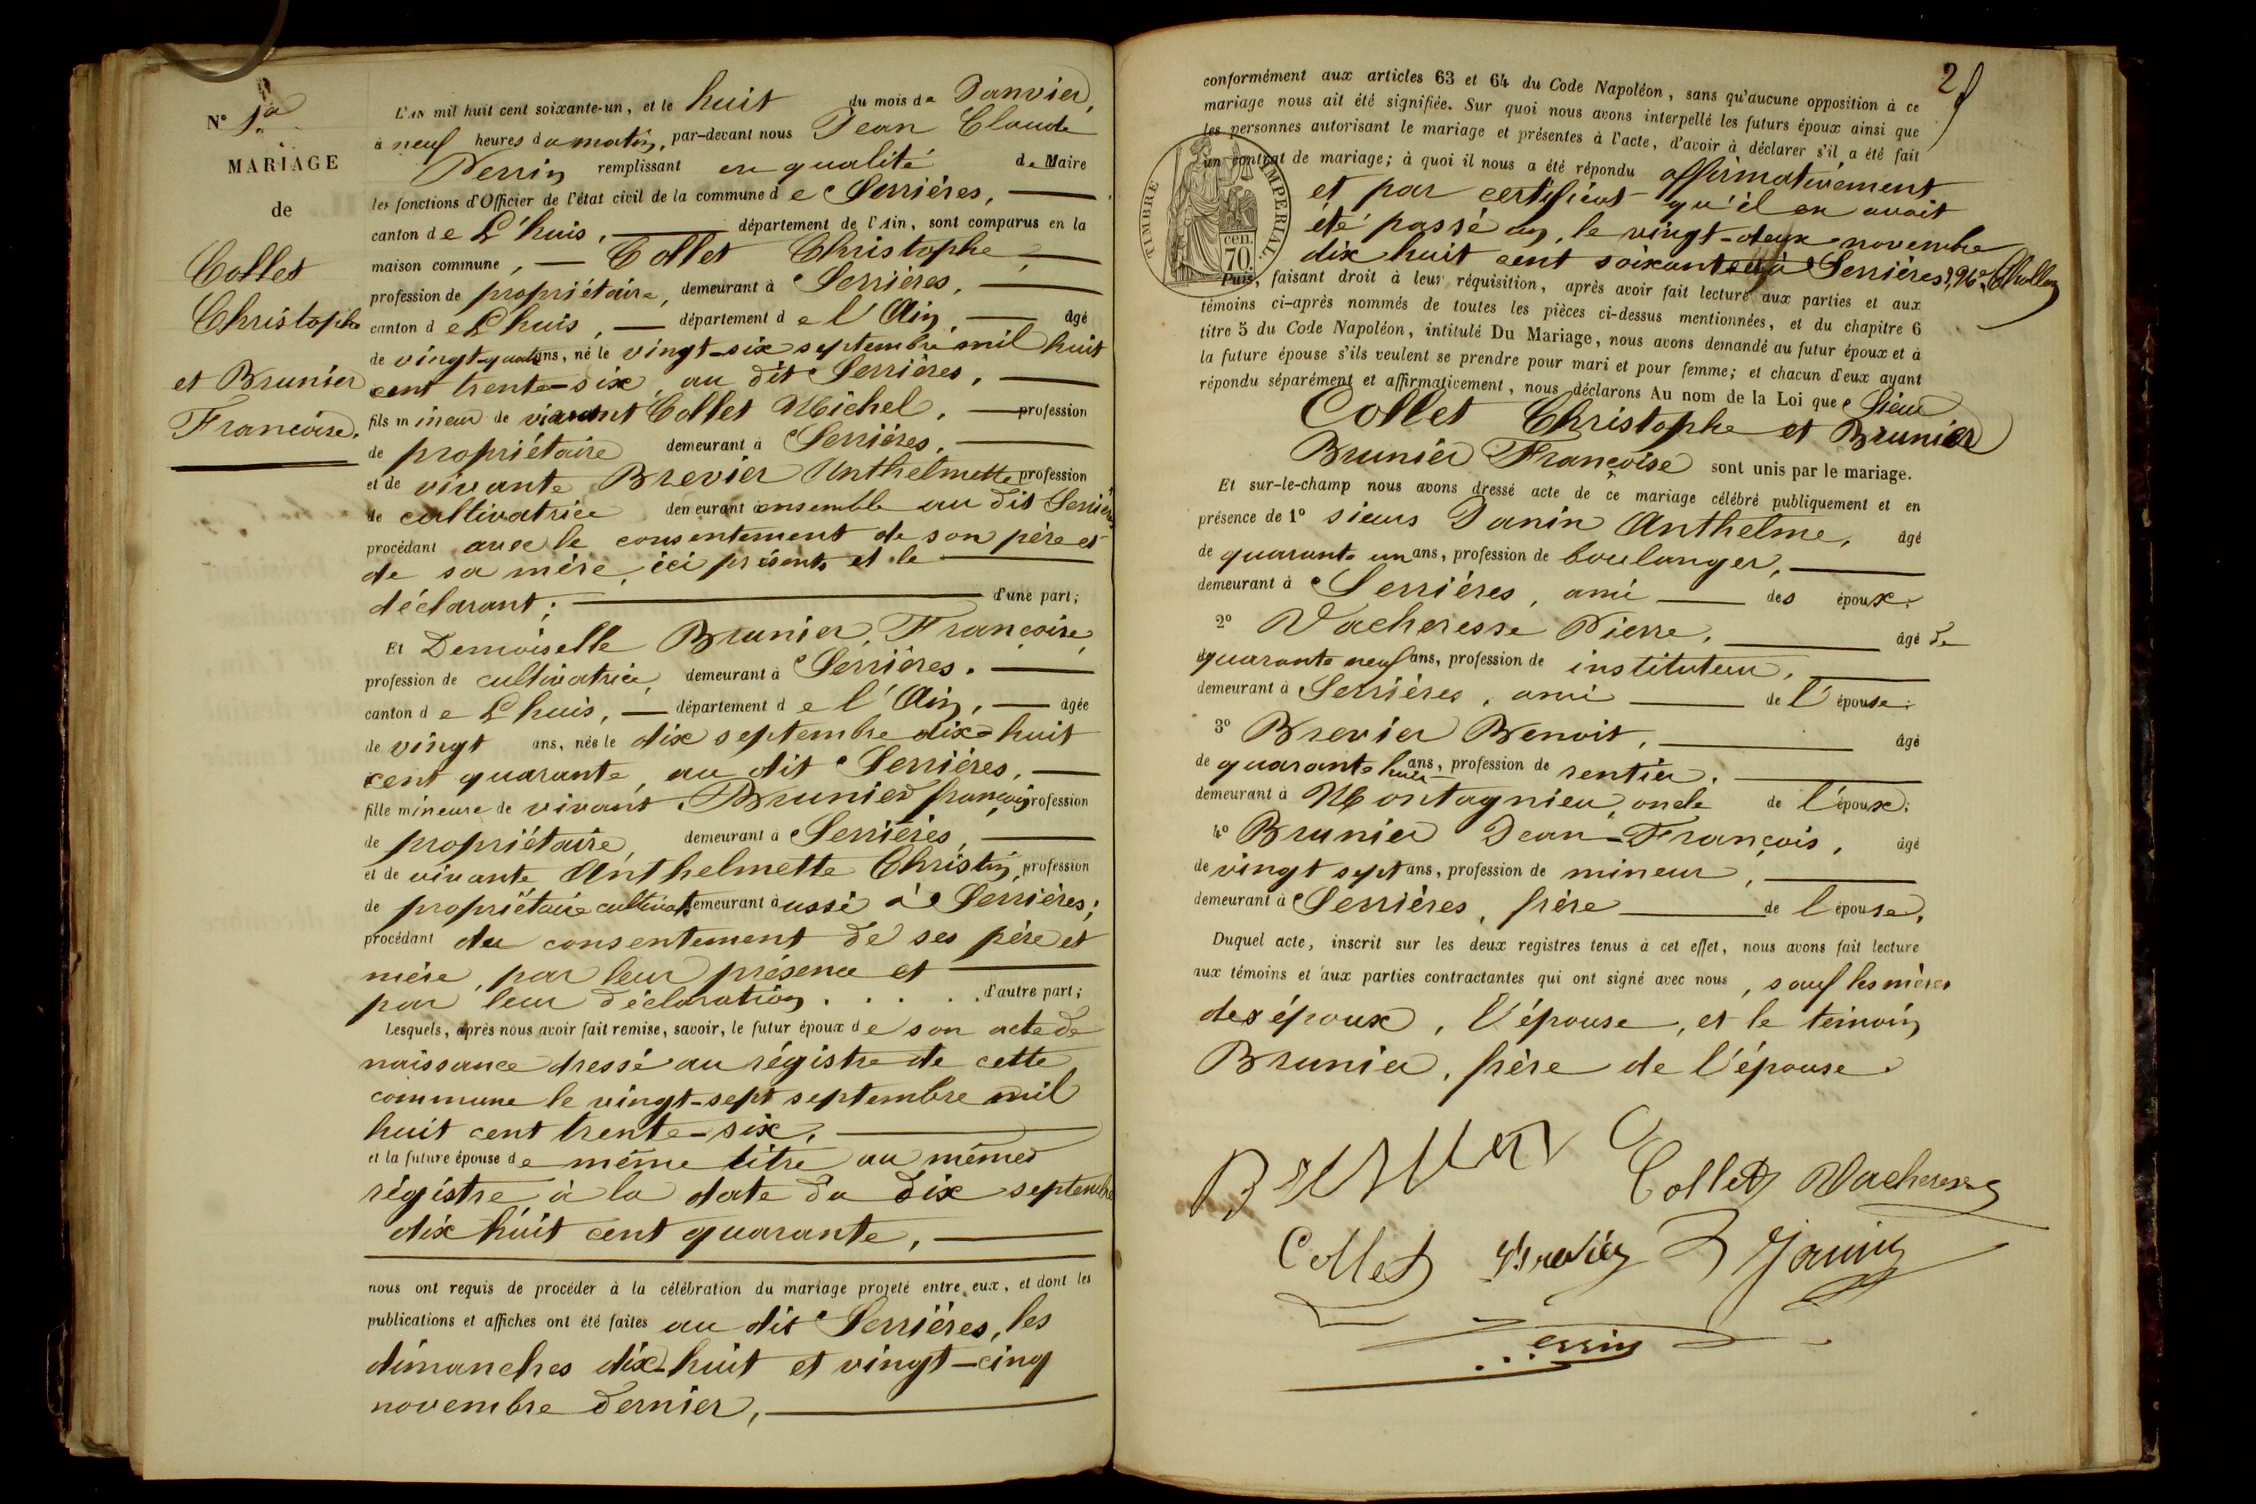 Nº 1er
MARIAGE
de
Collet
Christophe
et Brunier
Françoise.
L'AN mil huit cent soixante-un, et le huit du mois de Janvier,
à neuf heures du matin, par-devant nous Jean Claude
Perrin remplissant en qualité de Maire
les fonctions d'Officier de l'état civil de la commune de Serrières,
canton de L'huis, département de l'Ain, sont comparus en la
maison commune, Collet Christophe,
profession de propriétaire, demeurant à Serrières,
canton de Lhuis, département de l'Ain, âgé
de vingt-quatre ans, né le vingt-six septembre mil huit
cent trente-six, au dit Serrières,
fils mineur de vivant Collet Michel, profession
de propriétaire demeurant à Serrières,
et de vivante Brevier Anthelmette profession
de cultivatrice demeurant ensemble au dit Serrières
procédant avec le consentement de son père et
de sa mère, ici présents et le
déclarant; d'une part;
Et Demoiselle Brunier, Françoise,
profession de cultivatrice, demeurant à Serrières.
canton de Lhuis, département de l'Ain, âgée
de vingt ans, née le dix septembre dix-huit
cent quarante, au dit Serrières,
fille mineure de vivant Brunier françois profession
de propriétaire, demeurant à Serrières,
et de vivante Anthelmette Christin, profession
de propriétaire cultivat. demeurant aussi à Serrières;
procédant du consentement de ses père et
mère, par leur présence et
par leur déclaration. . . . . d'autre part;
Lesquels, après nous avoir fait remise, savoir, le futur époux de son acte de
naissance dressé au régistre de cette
commune le vingt-sept septembre mil
huit cent trente-six,
et la future épouse de même titre au mêmes
régistre à la date du dix septembre
dix huit cent quarante,
nous ont requis de procéder à la célébration du mariage projeté entre eux, et dont les
publications et affiches ont été faites au dit Serrières, les
dimanches dix-huit et vingt-cinq
novembre dernier,
2
conformément aux articles 63 et 64 du Code Napoléon, sans qu'aucune opposition à ce
mariage nous ait été signifiée. Sur quoi nous avons interpellé les futurs époux ainsi que
les personnes autorisant le mariage et présentes à l'acte, d'avoir à déclarer s'il a été fait
un contrat de mariage; à quoi il nous a été répondu affirmativement
TIMBRE IMPÉRIAL
70 cen.
et par certificat qu'il en avait
été passé un, le vingt-deux novembre
dix huit cent soixante à Serrières,
Puis, faisant droit à leur réquisition, après avoir fait lecture aux parties et aux
témoins ci-après nommés de toutes les pièces ci-dessus mentionnées, et du chapitre 6
titre 5 du Code Napoléon, intitulé Du Mariage, nous avons demandé au futur époux et à
la future épouse s'ils veulent se prendre pour mari et pour femme; et chacun d'eux ayant
répondu séparément et affirmativement, nous déclarons Au nom de la Loi que Sieur
Collet Christophe et Brunier
Brunier Françoise sont unis par le mariage.
Et sur-le-champ nous avons dressé acte de ce mariage célébré publiquement et en
présence de 1º sieurs Janin Anthelme, âgé
de quarante un ans, profession de boulanger,
demeurant à Serrières, ami des époux;
2º Vacheresse Pierre, âgé de
quarante neuf ans, profession de instituteur,
demeurant à Serrières, ami de l'épouse;
3º Brevier Benoit, âgé
de quarante huit ans, profession de rentier,
demeurant à Montagnieu, oncle de l'époux;
4º Brunier Jean-François, âgé
de vingt sept ans, profession de mineur,
demeurant à Serrières, frère de l'épouse,
Duquel acte, inscrit sur les deux registres tenus à cet effet, nous avons fait lecture
aux témoins et aux parties contractantes qui ont signé avec nous, sauf les mères
des époux, l'épouse, et le témoin
Brunier, frère de l'épouse.
Brunier Collet Vacheresse
Collet Brevier Janin
Perrin